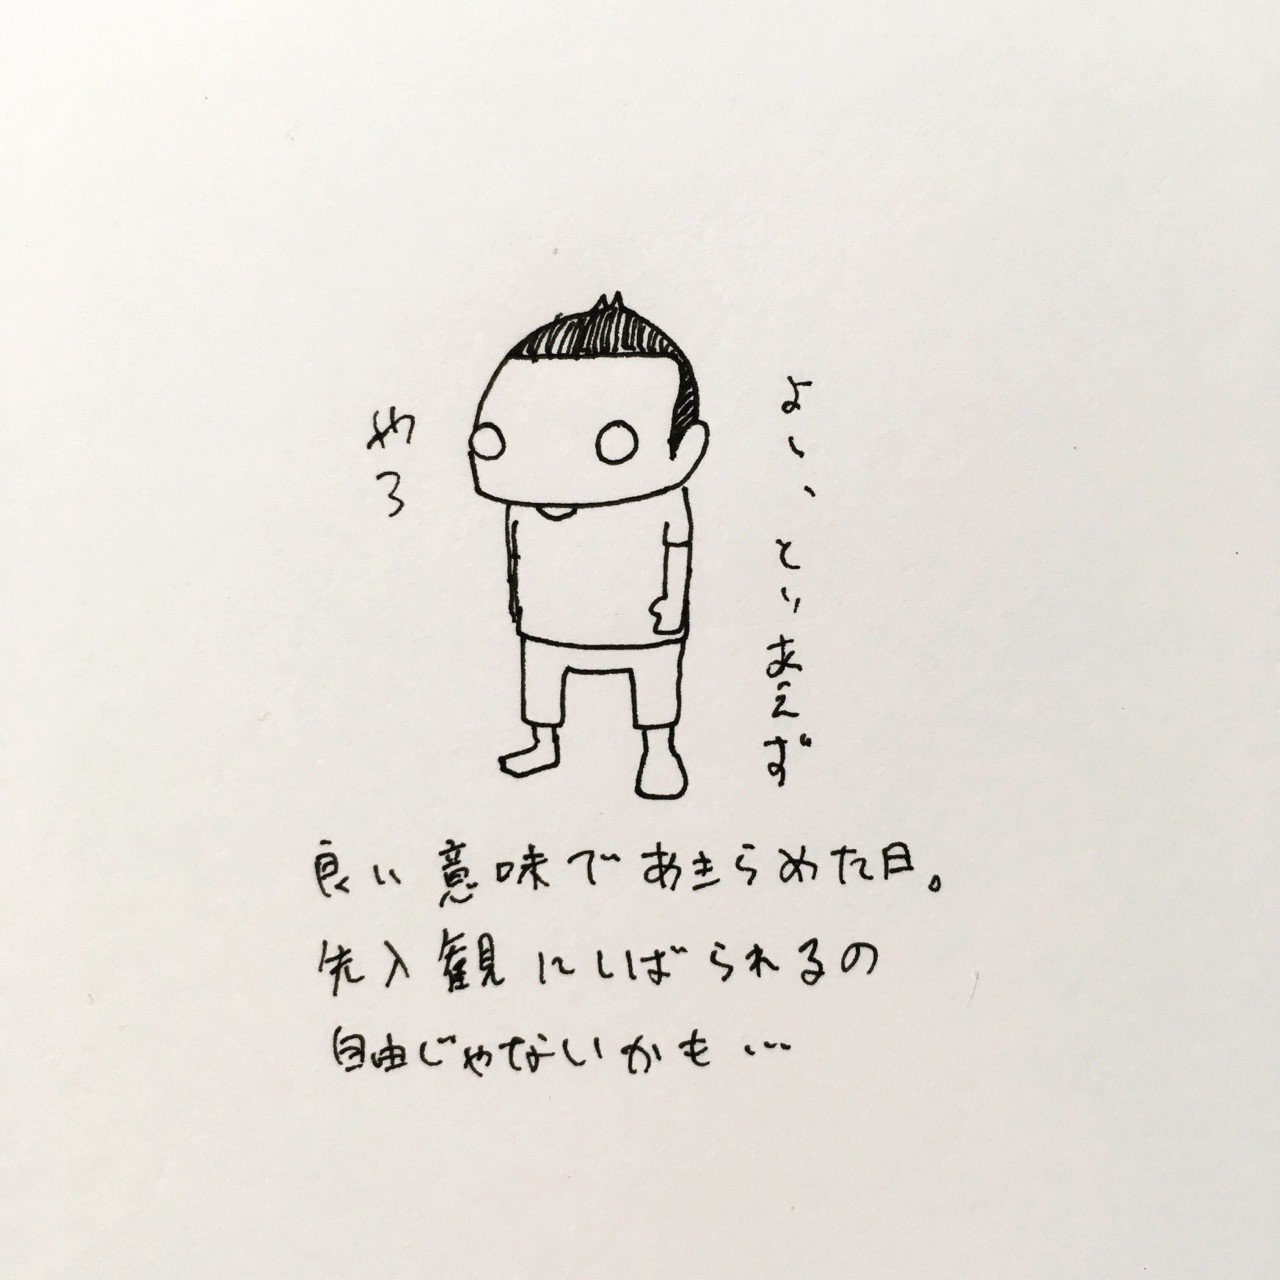 よし、とりあえず
やろ
良い意味であきらめた日。
先入観にしばられるの
自由じゃないかも…